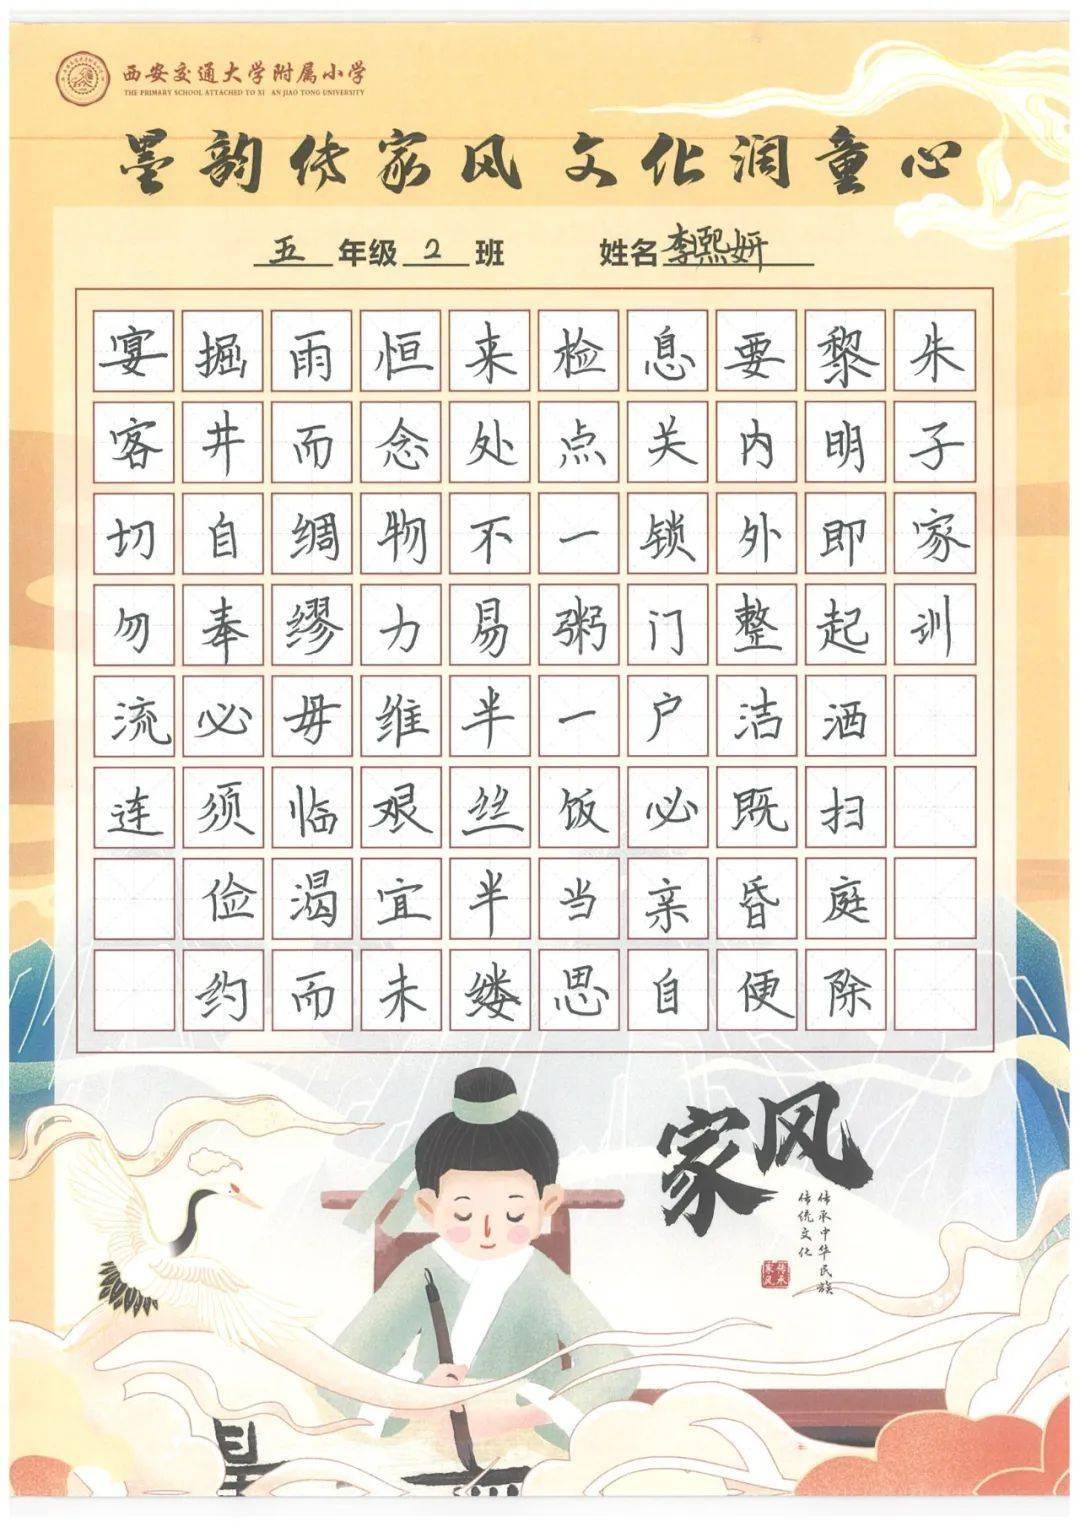 西安交通大学附属小学
THE PRIMARY SCHOOL ATTACHED TO XI AN JIAO TONG UNIVERSITY
墨韵传家风 文化润童心
五年级2班 姓名李熙妍
朱子家训
黎明即起洒扫庭除
要内外整洁既昏便
息关锁门户必亲自
检点一粥一饭当思
来处不易半丝半缕
恒念物力维艰宜未
雨而绸缪毋临渴而
掘井自奉必须俭约
宴客切勿流连
家风
传承中华民族
传统文化
传承
家风